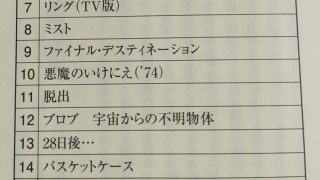 7 リング(TV版)
8 ミスト
9 ファイナル・デスティネーション
10 悪魔のいけにえ('74)
11 脱出
12 ブロブ 宇宙からの不明物体
13 28日後…
14 バスケットケース